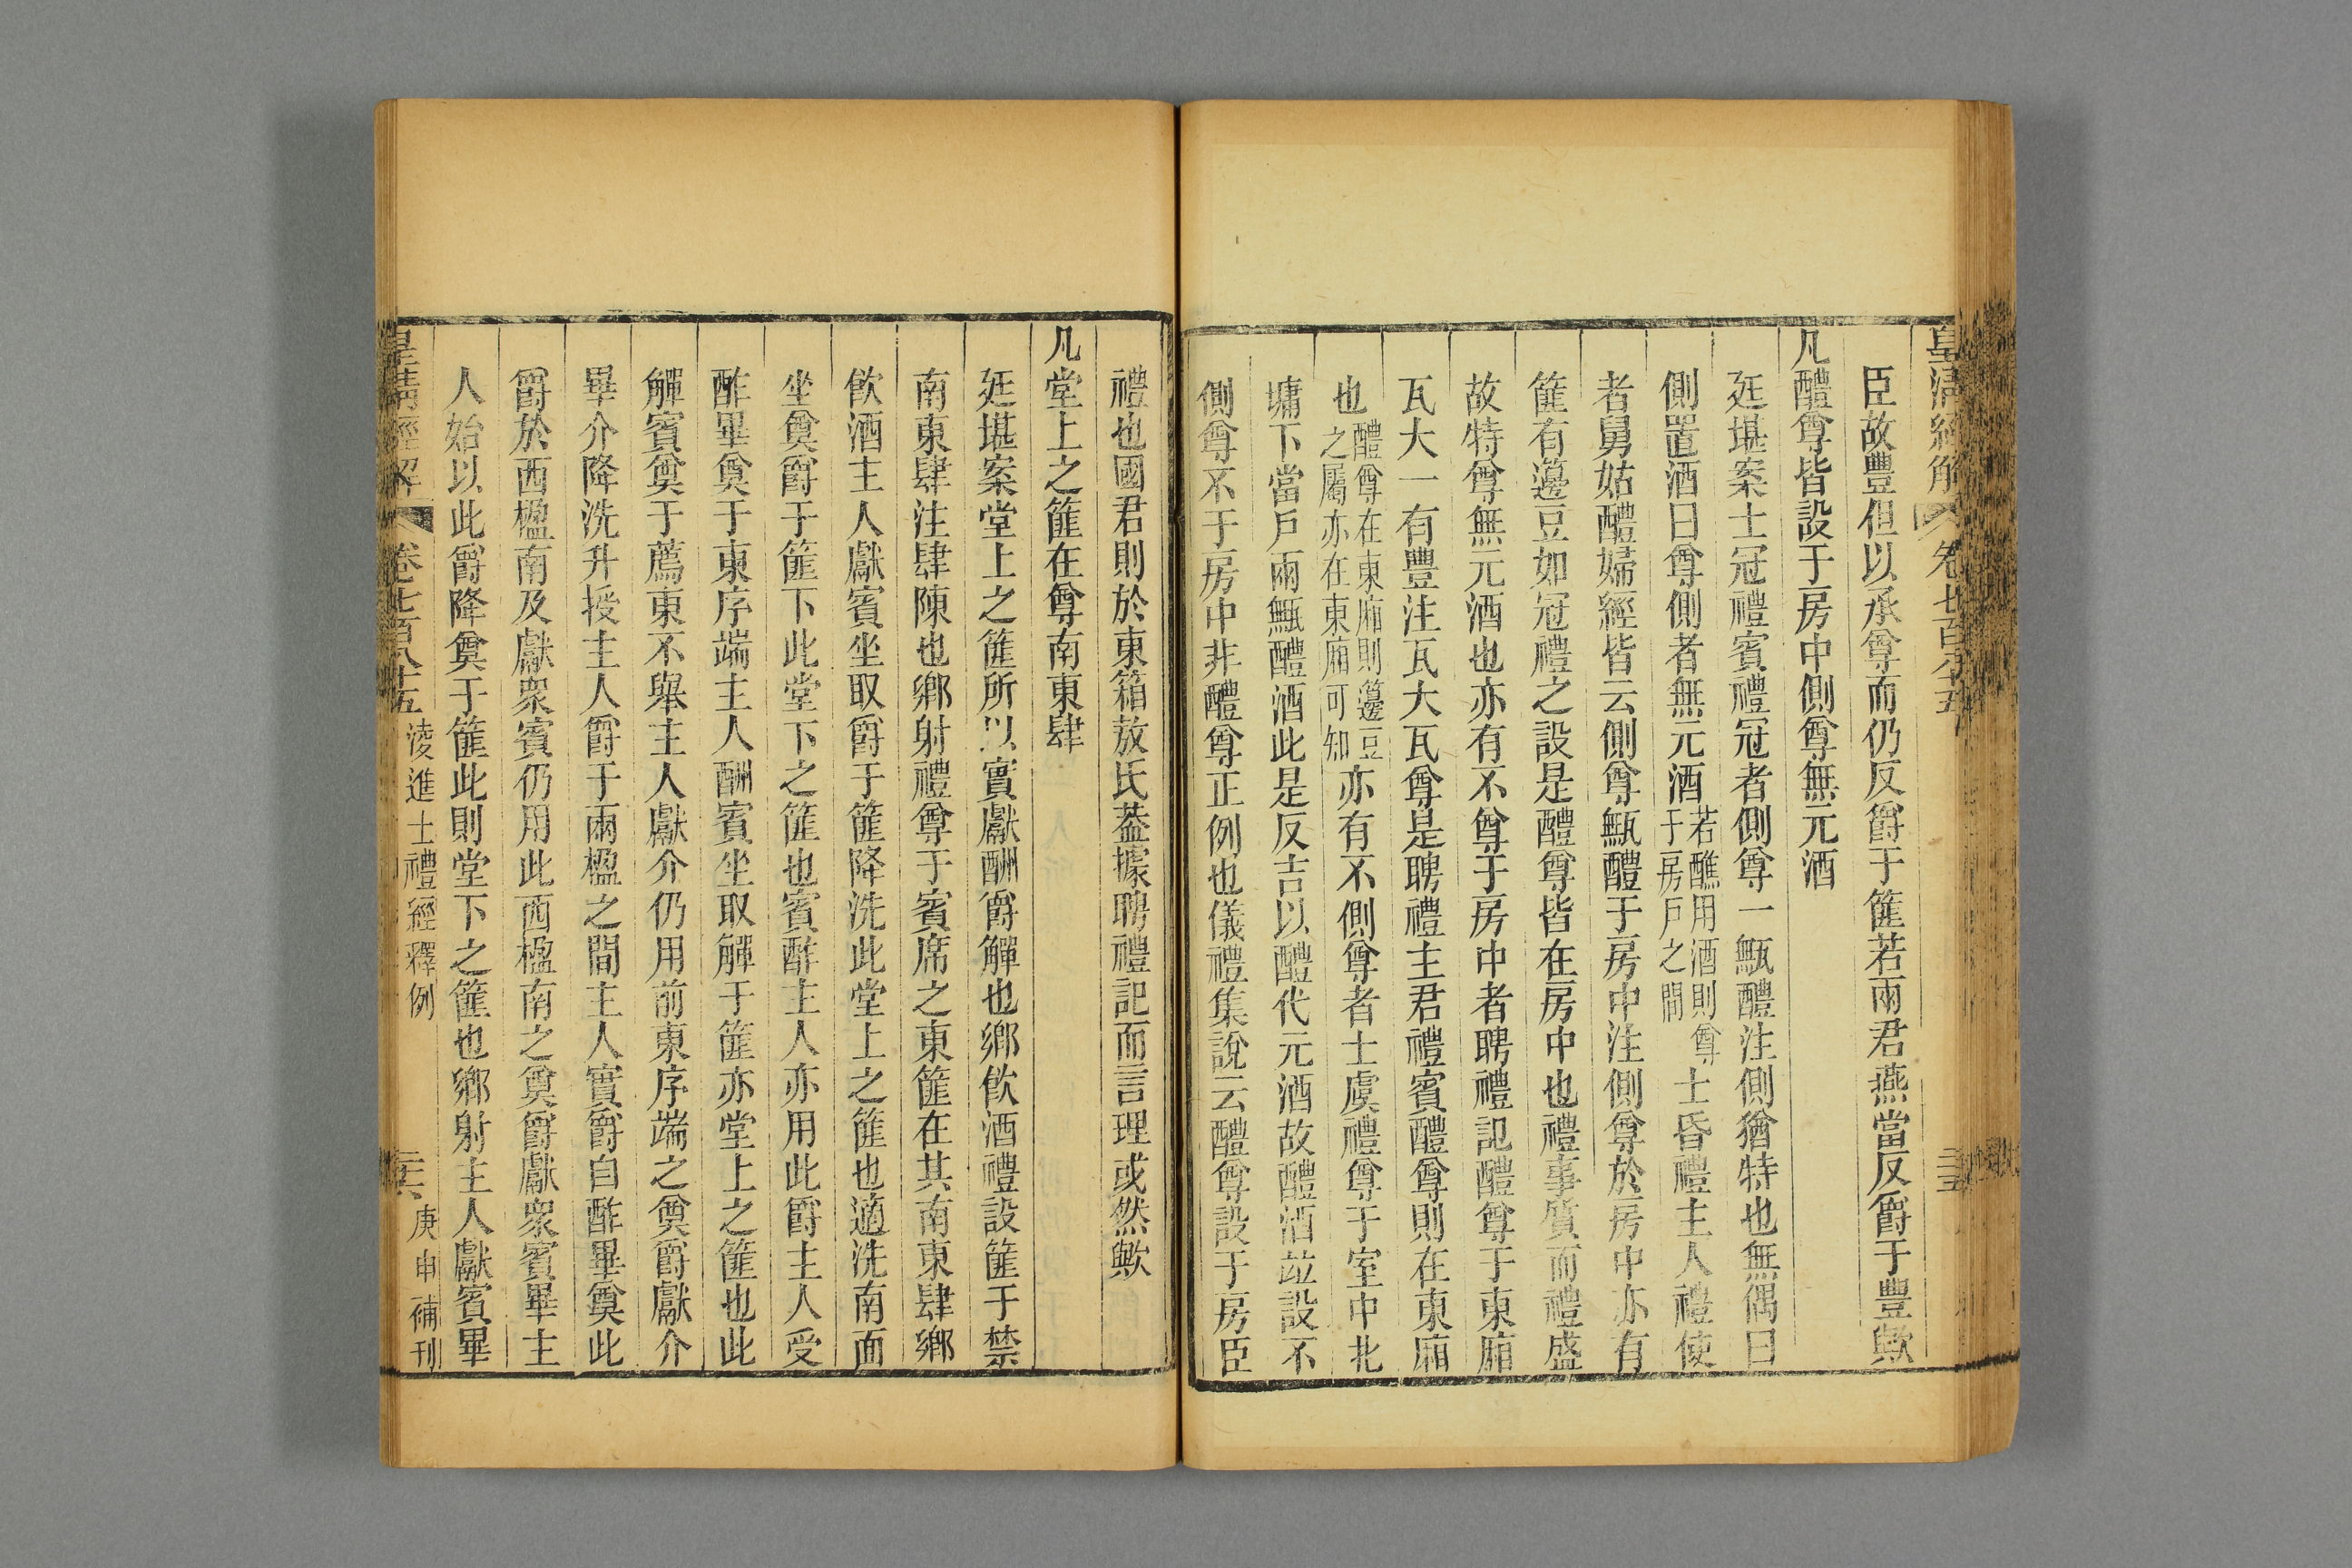 皇清經解 卷七百八十五
臣故豐但以承尊而仍反爵于篚若兩君燕當反爵于豐歟
凡醴尊皆設于房中側尊無元酒
廷堪案士冠禮賓禮冠者側尊一甒醴注側猶特也無偶曰
側置酒曰尊側者無元酒若醮用酒則尊于房戶之間士昏禮主人禮使
者舅姑醴婦經皆云側尊甒醴于房中注側尊於房中亦有
篚有籩豆如冠禮之設是醴尊皆在房中也禮事質而禮盛
故特尊無元酒也亦有不尊于房中者聘禮記醴尊于東廂
瓦大一有豐注瓦大瓦尊是聘禮主君禮賓醴尊則在東廂
也醴尊在東廂則籩豆之屬亦在東廂可知亦有不側尊者士虞禮尊于室中北
墉下當戶兩甒醴酒此是反吉以醴代元酒故醴酒竝設不
側尊不于房中非醴尊正例也儀禮集說云醴尊設于房臣
禮也國君則於東箱敖氏葢據聘禮記而言理或然歟
凡堂上之篚在尊南東肆
廷堪案堂上之篚所以實獻酬爵觶也鄉飲酒禮設篚于禁
南東肆注肆陳也鄉射禮尊于賓席之東篚在其南東肆鄉
飲酒主人獻賓坐取爵于篚降洗此堂上之篚也適洗南面
坐奠爵于篚下此堂下之篚也賓酢主人亦用此爵主人受
酢畢奠于東序端主人酬賓坐取觶于篚亦堂上之篚也此
觶賓奠于薦東不舉主人獻介仍用前東序端之奠爵獻介
畢介降洗升授主人爵于兩楹之間主人實爵自酢畢奠此
爵於西楹南及獻衆賓仍用此西楹南之奠爵獻衆賓畢主
人始以此爵降奠于篚此則堂下之篚也鄉射主人獻賓畢
皇清經解 卷七百八十五 淩進士禮經釋例 三六 庚申補刊